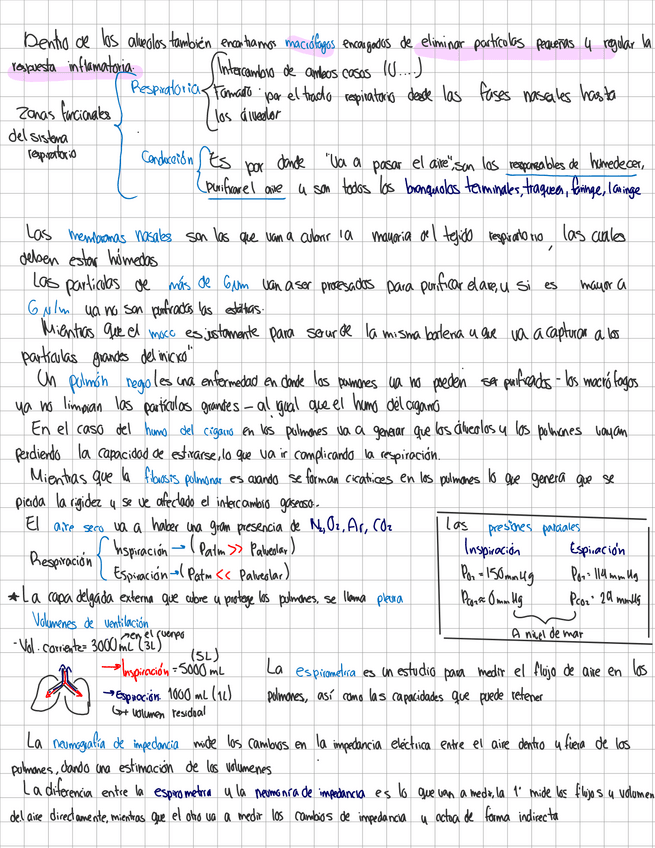 Dentro de los alveolos también encontramos macrófagos encargados de eliminar partículas pequeñas y regular la
respuesta inflamatoria.
Zonas funcionales
del sistema
respiratorio
Respiratoria
Intercambio de ambos casos (U....)
Formado por el tracto respiratorio desde las fosas nasales hasta
los alveolar
Conducción
Es por donde "va a pasar el aire", son los responsables de humedecer,
purificar el aire y son todos los bronquiolos terminales, traquea, faringe, laringe
Las membranas nasales son las que van a cubrir la mayoria del tejido respiratorio, las cuales
deben estar húmedas
Las particulas de más de 6 µm van a ser procesados para purificar el aire, y si es mayor a
6 µ/m ya no son purificadas las
Mientras que el moco es justamente para servir de la misma barrera y que va a capturar a las
partículas grandes del inicio"
Un pulmón negro les una enfermedad en donde los pulmones ya no pueden ser purificados - los macrófagos
ya no limpian las partículas grandes - al igual que el humo del cigarro
En el caso del humo del cigarro en los pulmones va a generar que los álveolos y los pulmones vayan
perdiendo la capacidad de estirarse, lo que va ir complicando la respiración.
Mientras que la fibrosis pulmonar es cuando se forman cicatices en los pulmones lo que genera que se
pierda la rigidez y se ve afectado el intercambio gaseoso.
El aire seco va a haber una gran presencia de N2, O2, Ar, CO2
Respiración
Inspiración → (Patm >> Palveolar)
Espiración → (Patm << Palveolar)
* La capa delgada externa que cubre y protege los pulmones, se llama pleura
Las presiones parciales
Inspiración Espiración
PO2 = 150 mmHg PO2 = 114 mmHg
PCO2 ≈ 0 mmHg PCO2 = 29 mmHg
A nivel de mar
Volumenes de ventilación
- Vol. corriente = 3000 mL (3L) → en el cuerpo
→ Inspiración = 5000 mL (5L)
→ Espiración 1000 mL (1L)
↳ + volumen residual
La espirometria es un estudio para medir el flujo de aire en los
pulmones, así como las capacidades que puede retener
La neumografía de impedancia mide los cambios en la impedancia eléctrica entre el aire dentro y fuera de los
pulmones, dando una estimación de los volumenes
La diferencia entre la espirometria y la de impedancia es lo que van a medir, la 1° mide los flujos y volumen
del aire directamente, mientras que el otro va a medir los cambios de impedancia y actua de forma indirecta